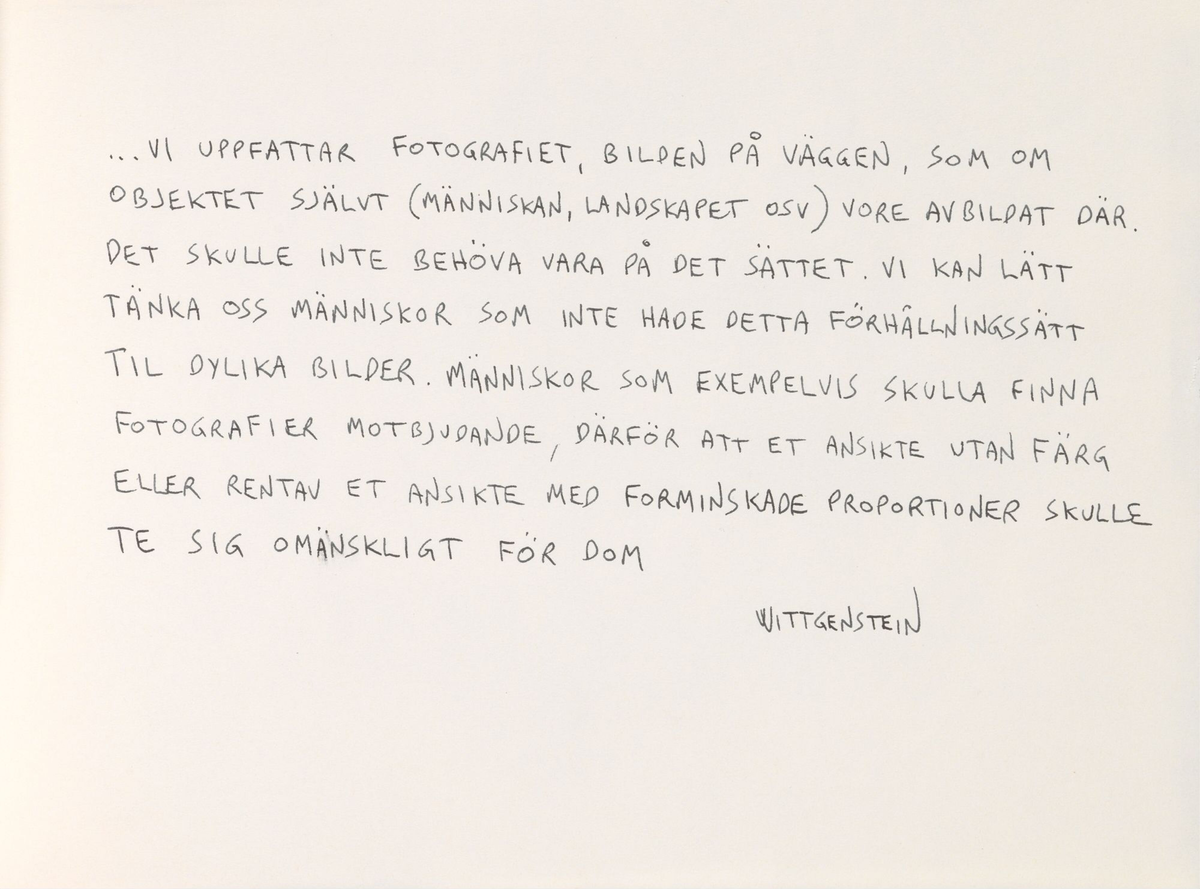 ...VI UPPFATTAR FOTOGRAFIET, BILDEN PÅ VÄGGEN, SOM OM
OBJEKTET SJÄLVT (MÄNNISKAN, LANDSKAPET OSV) VORE AVBILDAT DÄR.
DET SKULLE INTE BEHÖVA VARA PÅ DET SÄTTET. VI KAN LÄTT
TÄNKA OSS MÄNNISKOR SOM INTE HADE DETTA FÖRHÅLLNINGSSÄTT
TIL DYLIKA BILDER. MÄNNISKOR SOM EXEMPELVIS SKULLA FINNA
FOTOGRAFIER MOTBJUDANDE, DÄRFÖR ATT ET ANSIKTE UTAN FÄRG
ELLER RENTAV ET ANSIKTE MED FORMINSKADE PROPORTIONER SKULLE
TE SIG OMÄNSKLIGT FÖR DOM
WITTGENSTEIN